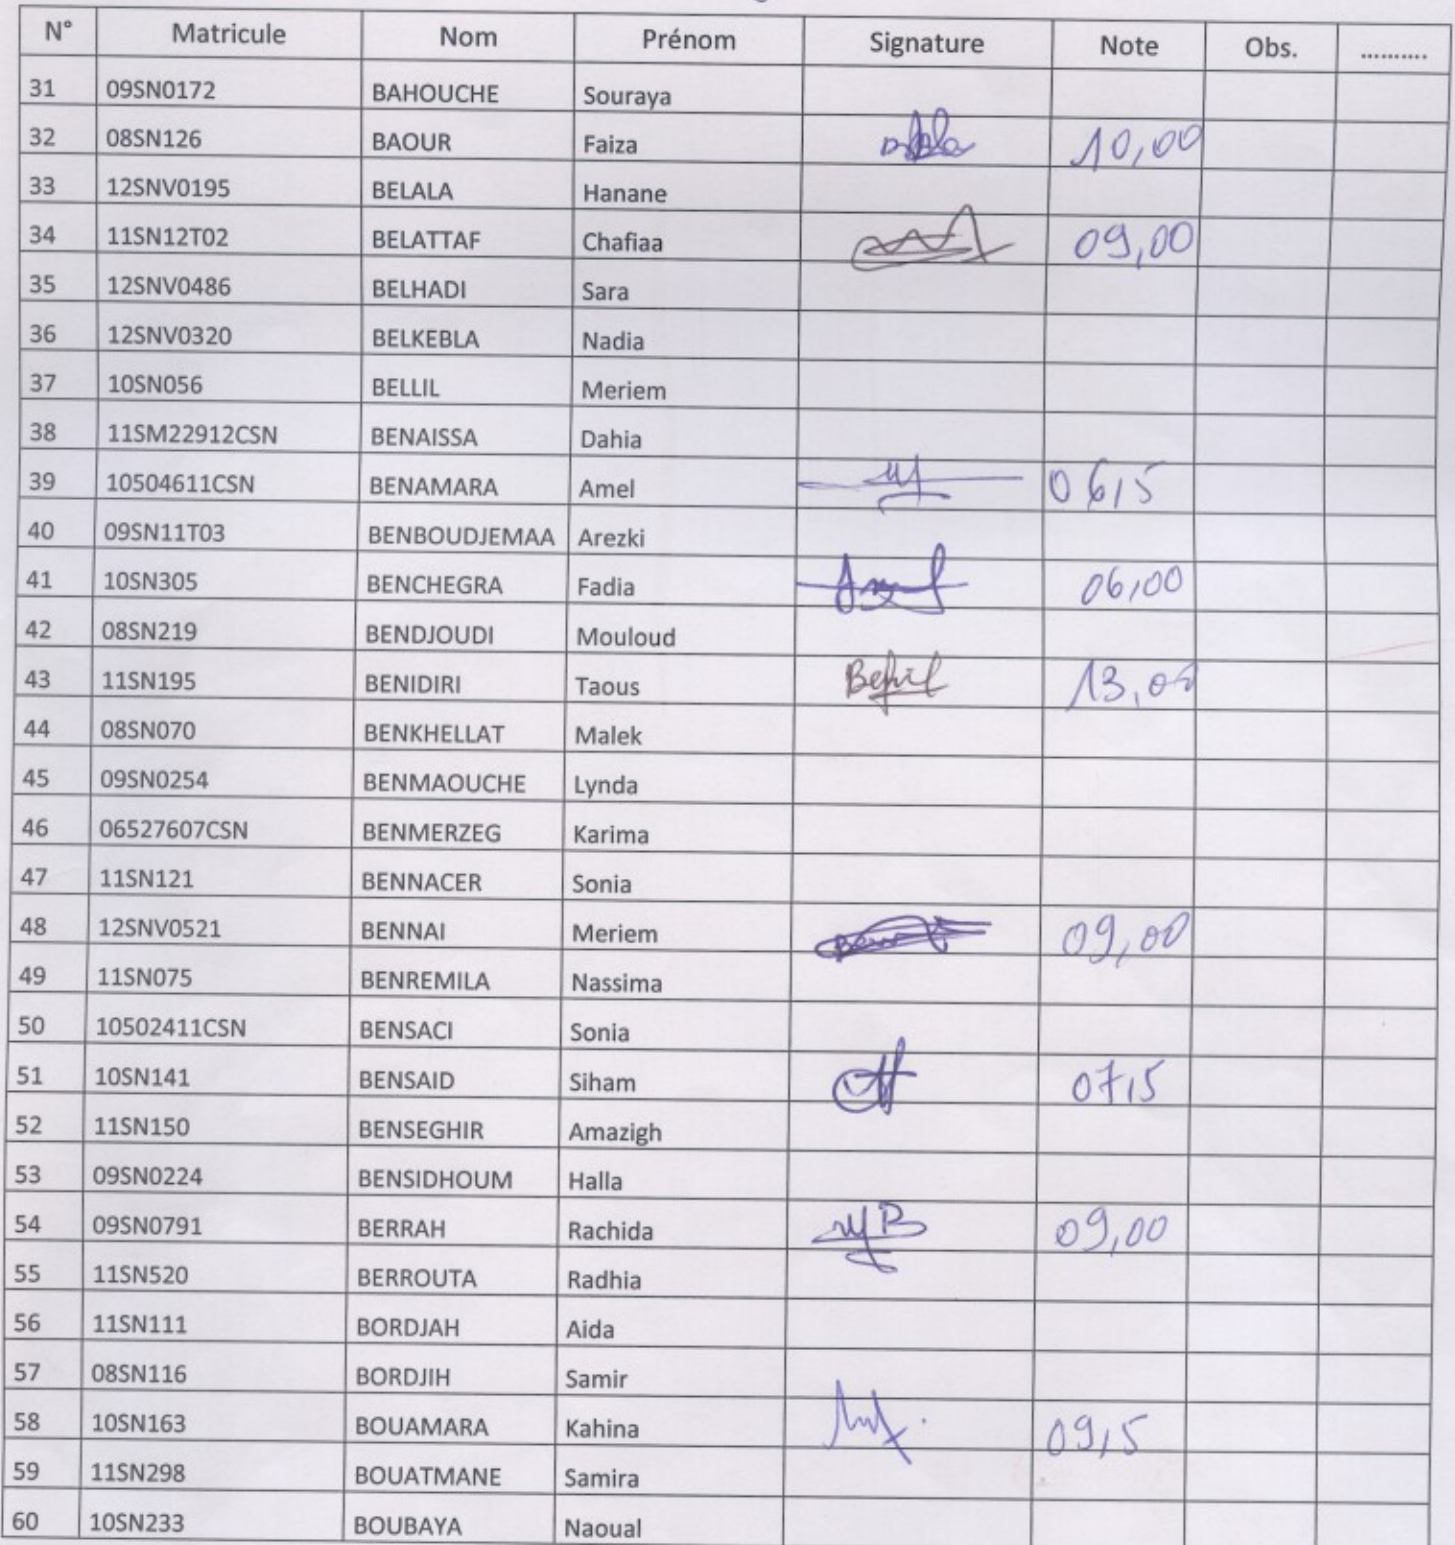 N° Matricule Nom Prénom Signature Note Obs. ..........
31 09SN0172 BAHOUCHE Souraya
32 08SN126 BAOUR Faiza 10,00
33 12SNV0195 BELALA Hanane
34 11SN12T02 BELATTAF Chafiaa 09,00
35 12SNV0486 BELHADI Sara
36 12SNV0320 BELKEBLA Nadia
37 10SN056 BELLIL Meriem
38 11SM22912CSN BENAISSA Dahia
39 10504611CSN BENAMARA Amel 06,5
40 09SN11T03 BENBOUDJEMAA Arezki
41 10SN305 BENCHEGRA Fadia 06,00
42 08SN219 BENDJOUDI Mouloud
43 11SN195 BENIDIRI Taous 13,00
44 08SN070 BENKHELLAT Malek
45 09SN0254 BENMAOUCHE Lynda
46 06527607CSN BENMERZEG Karima
47 11SN121 BENNACER Sonia
48 12SNV0521 BENNAI Meriem 09,00
49 11SN075 BENREMILA Nassima
50 10502411CSN BENSACI Sonia
51 10SN141 BENSAID Siham 07,5
52 11SN150 BENSEGHIR Amazigh
53 09SN0224 BENSIDHOUM Halla
54 09SN0791 BERRAH Rachida 09,00
55 11SN520 BERROUTA Radhia
56 11SN111 BORDJAH Aida
57 08SN116 BORDJIH Samir
58 10SN163 BOUAMARA Kahina 09,5
59 11SN298 BOUATMANE Samira
60 10SN233 BOUBAYA Naoual